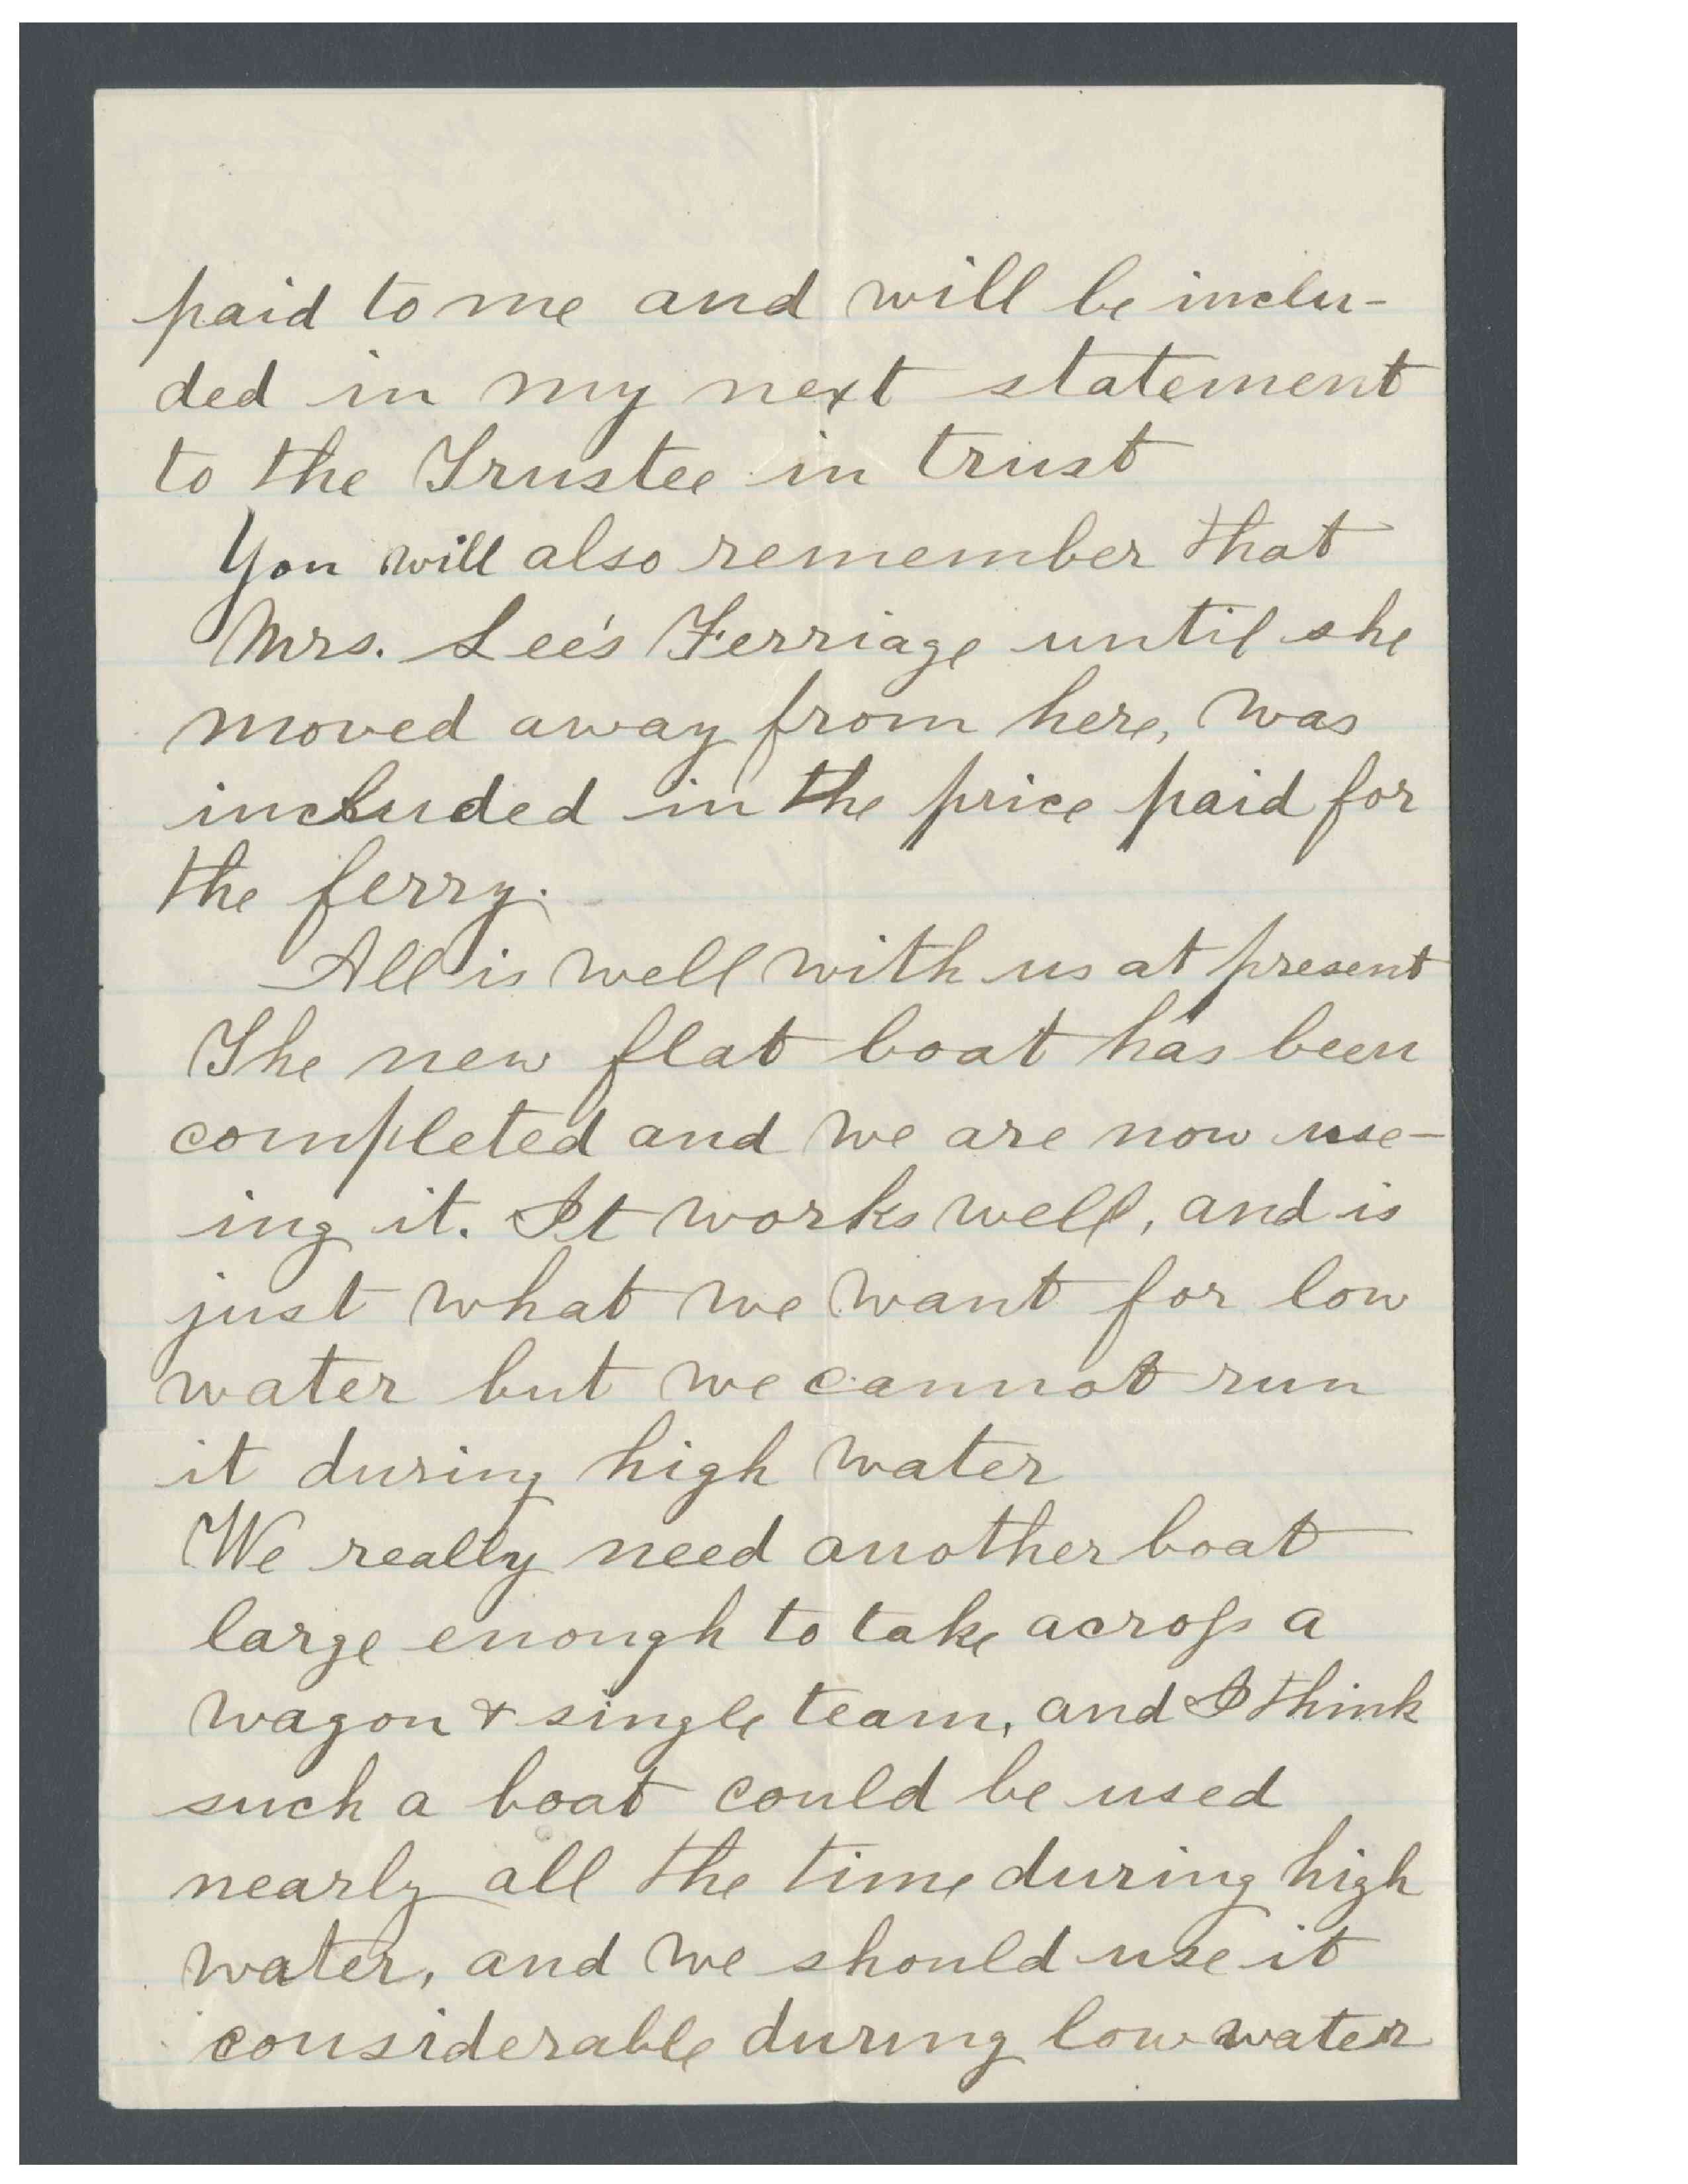 paid to me and will be inclu-
ded in my next statement
to the Trustee in trust
You will also remember that
Mrs. Lee's Ferriage until she
moved away from here, was
included in the price paid for
the ferry.
All is well with us at present
The new flat boat has been
completed and we are now use-
ing it. It works well, and is
just what we want for low
water but we cannot run
it during high water
We really need another boat
large enough to take across a
wagon & single team, and I think
such a boat could be used
nearly all the time during high
water, and we should use it
considerable during low water